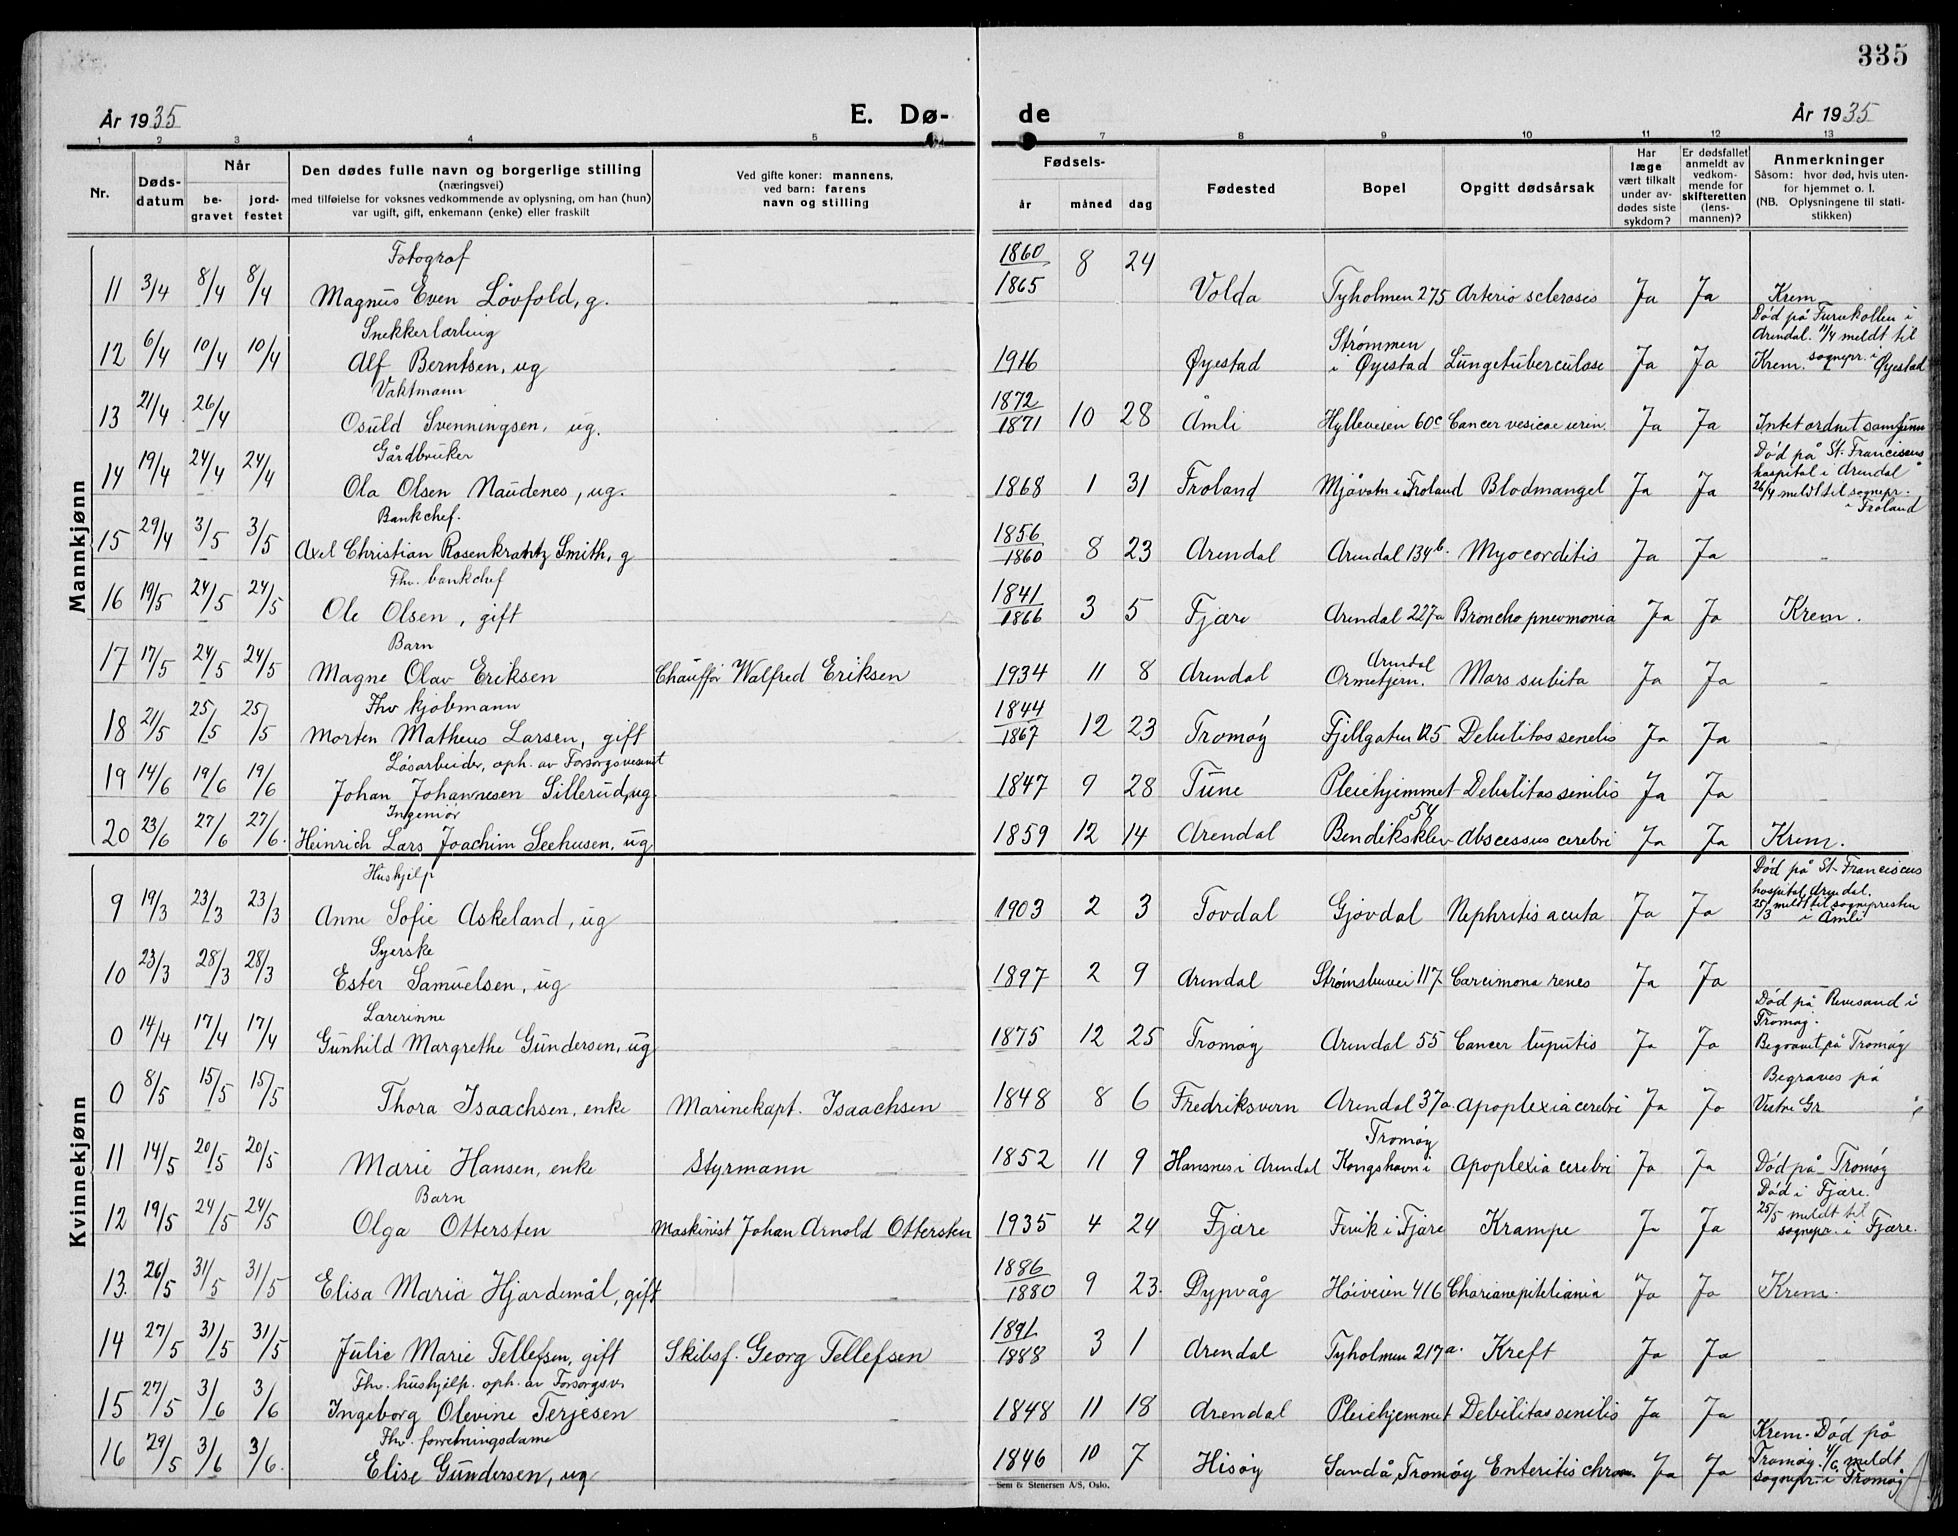 335
År 1935 E. Dø- de År 1935
1 2 3 4 5 7 8 9 10 11 12 13
Nr. Døds-datum Når be-gravet jord-festet Den dødes fulle navn og borgerlige stilling (næringsvei) med tilføielse for voksnes vedkommende av oplysning, om han (hun) var ugift, gift, enkemann (enke) eller fraskilt Ved gifte koner: mannens, ved barn: farens navn og stilling Fødsels- år måned dag Fødested Bopel Opgitt dødsårsak Har læge vært tilkalt under av-dødes siste sykdom? Er dødsfallet anmeldt av vedkom-mende for skifteretten (lens-mannen)? Anmerkninger Såsom: hvor død, hvis uten-for hjemmet o. l. (NB. Oplysningene til stati-stikken)
Mannkjønn
Fotograf 1860
11 3/4 8/4 8/4 Magnus Even Lövfold, g. 1865 8 24 Volda Tyholmen 275 Arterio sclerosis Ja Ja Krem
Snekkerlærling Strømmen Død på Furukollen i Arendal. 11/4 meldt til
12 6/4 10/4 10/4 Alf Berntsen, ug 1916 Øyestad i Øyestad Lungetuberculose Ja Ja Krem. sognepr. i Øyestad
Vaktmann 1872
13 21/4 26/4 Osuld Svenningsen, ug. 1871 10 28 Åmli Hylleveien 60c Cancer vesicae urin. Ja Ja Intet ordnet samfunn
Gårdbruker Død på St. Franciscus hospital i Arendal
14 19/4 24/4 24/4 Ola Olsen Naudenes, ug. 1868 1 31 Froland Mjåvatn i Froland Blodmangel Ja Ja 26/4 meldt til sognepr. i Froland
Bankchef. 1856
15 29/4 3/5 3/5 Axel Christian Rosenkrantz Smith, g 1860 8 23 Arendal Arendal 134b. Myocorditis Ja Ja –
Fhv. bankchef 1841
16 19/5 24/5 24/5 Ole Olsen, gift 1866 3 5 Fjære Arendal 227a Broncho pnevmonia Ja Ja Krem.
Barn Arendal
17 17/5 24/5 24/5 Magne Olav Eriksen Chauffør Walfred Eriksen 1934 11 8 Arendal Ormetjern. Mars subita Ja Ja –
Fhv kjøbmann 1844
18 21/5 25/5 25/5 Morten Matheus Larsen, gift 1867 12 23 Tromøy Fjellgaten 125 Debilitas senelis Ja Ja –
Løsarbeider, oph. av Forsorgsvesenet
19 14/6 19/6 19/6 Johan Johannesen Sillerud, ug. 1847 9 28 Tune Pleiehjemmet Debilitas senilis Ja Ja –
Ingeniør 54
20 23/6 27/6 27/6. Heinrich Lars Joachim Seehusen, ug 1859 12 14 Arendal Bendiksklev Abscessus cerebri Ja Ja Krem.
Kvinnekjønn
Hushjelp Død på St. Franciscus hospital, Arendal.
9 19/3 23/3 23/3 Anne Sofie Askeland, ug 1903 2 3 Tovdal Gjøvdal Nephritis acuta Ja Ja 25/3 meldt til sognepresten i Åmli
Syerske
10 23/3 28/3 28/3 Ester Samuelsen, ug 1897 2 9 Arendal Strømsbuvei 117 Carcimona renes Ja Ja
Lærerinne Død på Revesand i Tromøy.
0 14/4 17/4 17/4 Gunhild Margrethe Gundersen, ug 1875 12 25 Tromøy Arendal 55 Cancer Ja Ja Begravet på Tromøy
Begraves på
0 8/5 15/5 15/5 Thora Isaachsen, enke Marinekapt. Isaachsen 1848 8 6 Fredriksvern Arendal 37a. Apoplexia cerebri Ja Ja Vestre Gr
Tromøy
11 14/5 20/5 20/5 Marie Hansen, enke Styrmann 1852 11 9 Hansnes i Arendal Kongshavn i Apoplexia cerebri Ja Ja Død på Tromøy
Barn Død i Fjære.
12 19/5 24/5 24/5 Olga Ottersten Maskinist Johan Arnold Ottersten 1935 4 24 Fjære Fevik i Fjære Krampe Ja Ja 25/5 meldt til sognepr. i Fjære.
1886
13. 26/5 31/5 31/5 Elisa Maria Hjardemål, gift 1880 9 23. Dypvåg Höiveien 416 Ja Ja Krem.
1891
14 27/5 31/5 31/5 Julie Marie Tellefsen, gift Skibsf. Georg Tellefsen 1888 3 1 Arendal Tyholmen 217a. Kreft Ja Ja –
Fhv. hushjelp. oph. av Forsorgsv.
15 27/5 3/6 3/6 Ingeborg Olevine Terjesen 1848 11 18 Arendal Pleiehjemmet Debilitas senilis Ja Ja
Fhv. forretningsdame Krem. Død på
16 29/5 3/6 3/6. Elise Gundersen, ug 1846 10 7 Hisøy Sandå, Tromøy Enteritis chron. Ja Ja Tromøy. 4/6 meldt sognepr. i Tromøy
Sem & Stenersen A/S, Oslo.